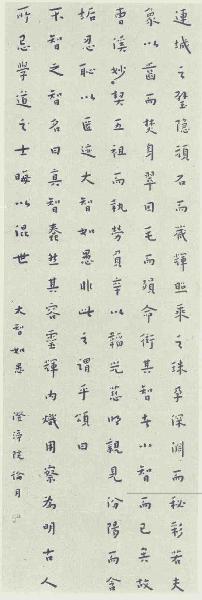 連城之璧隱頑石而歲輝照乘之珠孕深淵而秘彩若夫
象以齒而焚身翠因毛而殞命衒其智者小智而已矣故
曹溪妙契五祖而執勞負辛以韜光慈明親見汾陽而含
垢忍恥以匿迹大智如愚非此之謂乎頌曰
不智之智名曰真智蠢然其容靈輝內熾用察為明古人
所忌學道之士晦以混世
大智如愚 澄淨院論月